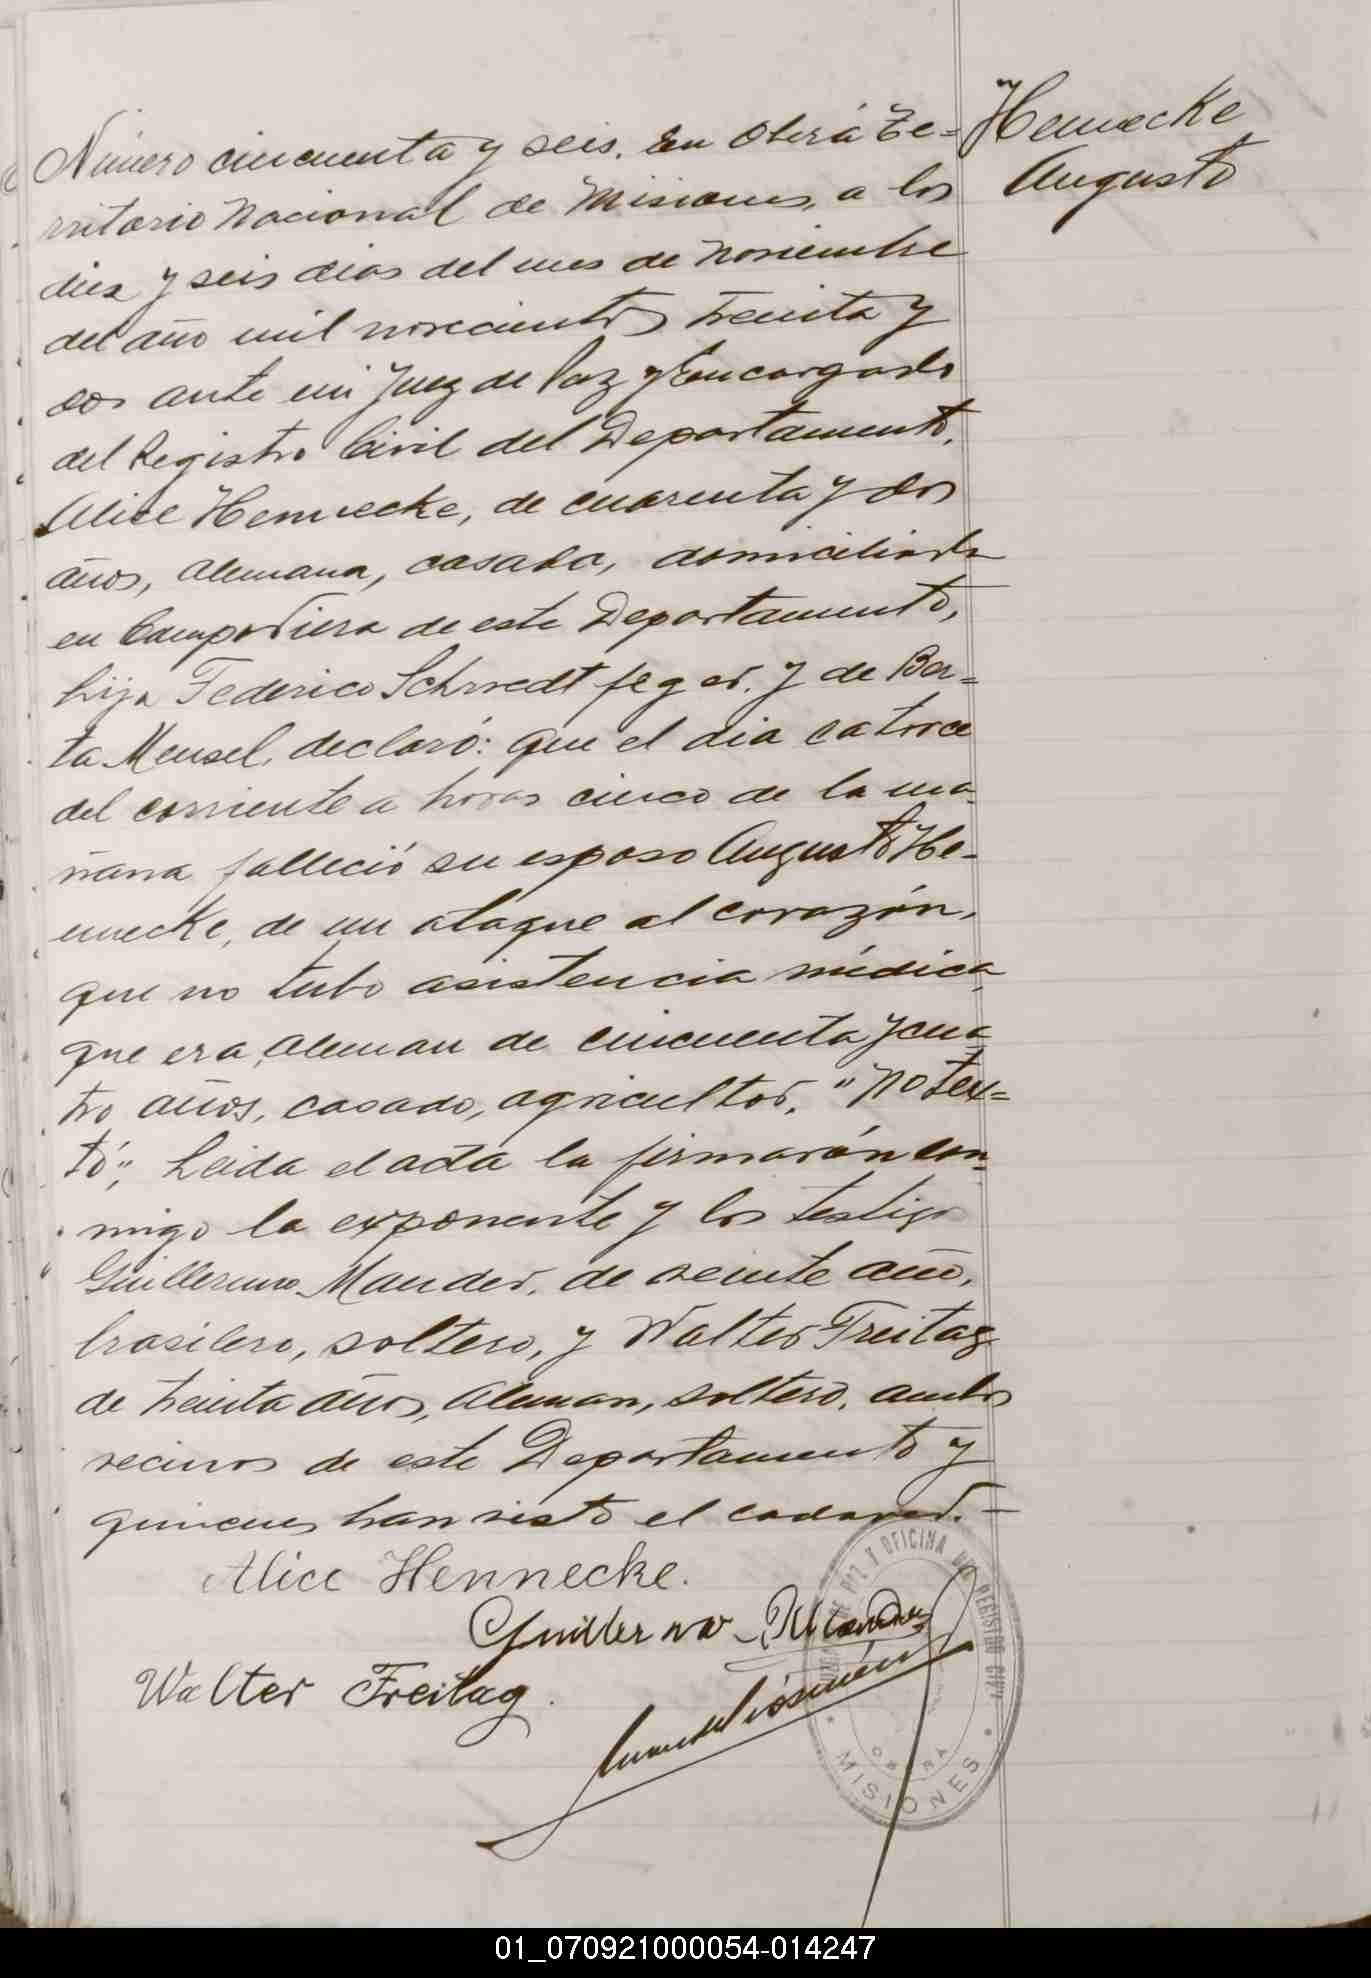 Hennecke
Augusto
Número cincuenta y seis. En Oberá Te=
rritorio Nacional de Misiones, a los
diez y seis dias del mes de Noviembre
del año mil novecientos treinta y
dos ante mi Juez de Paz y Encargado
del Registro Civil del Departamento,
Alice Hennecke, de cuarenta y dos
años, alemana, casada, domiciliada
en Campo Viera de este Departamento,
hija Federico Schwedt feger. y de Ber=
ta Mensel, declaró: que el dia catorce
del corriente a horas cinco de la ma-
ñana falleció su esposo Augusto He-
nnecke, de un ataque al corazón,
que no tubo asistencia médica,
que era, aleman de cincuenta y cua
tro años, casado, agricultor, "No tex=
tó", Leida el acta la firmarón con-
migo la exponente y los testigo
Guillermo Mander, de veinte año,
brasilero, soltero, y Walter Freitag
de treinta años, aleman, soltero, ambos
vecinos de este Departamento y
quienes han visto el cadaver.-
Alice Hennecke.
Guillermo Mander
Walter Freitag.
JUZGADO DE PAZ Y OFICINA DEL REGISTRO CIVIL
OBERA
MISIONES
01_070921000054-014247